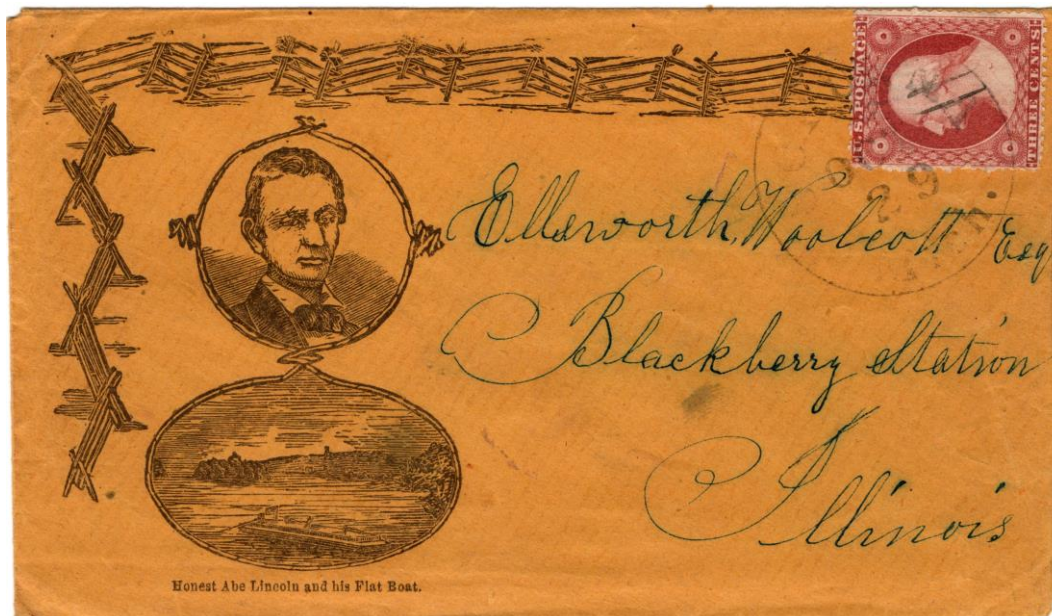 U.S. POSTAGE
THREE CENTS
29
Ellsworth Woolcott Esq
Blackberry Station
Illinois
Honest Abe Lincoln and his Flat Boat.